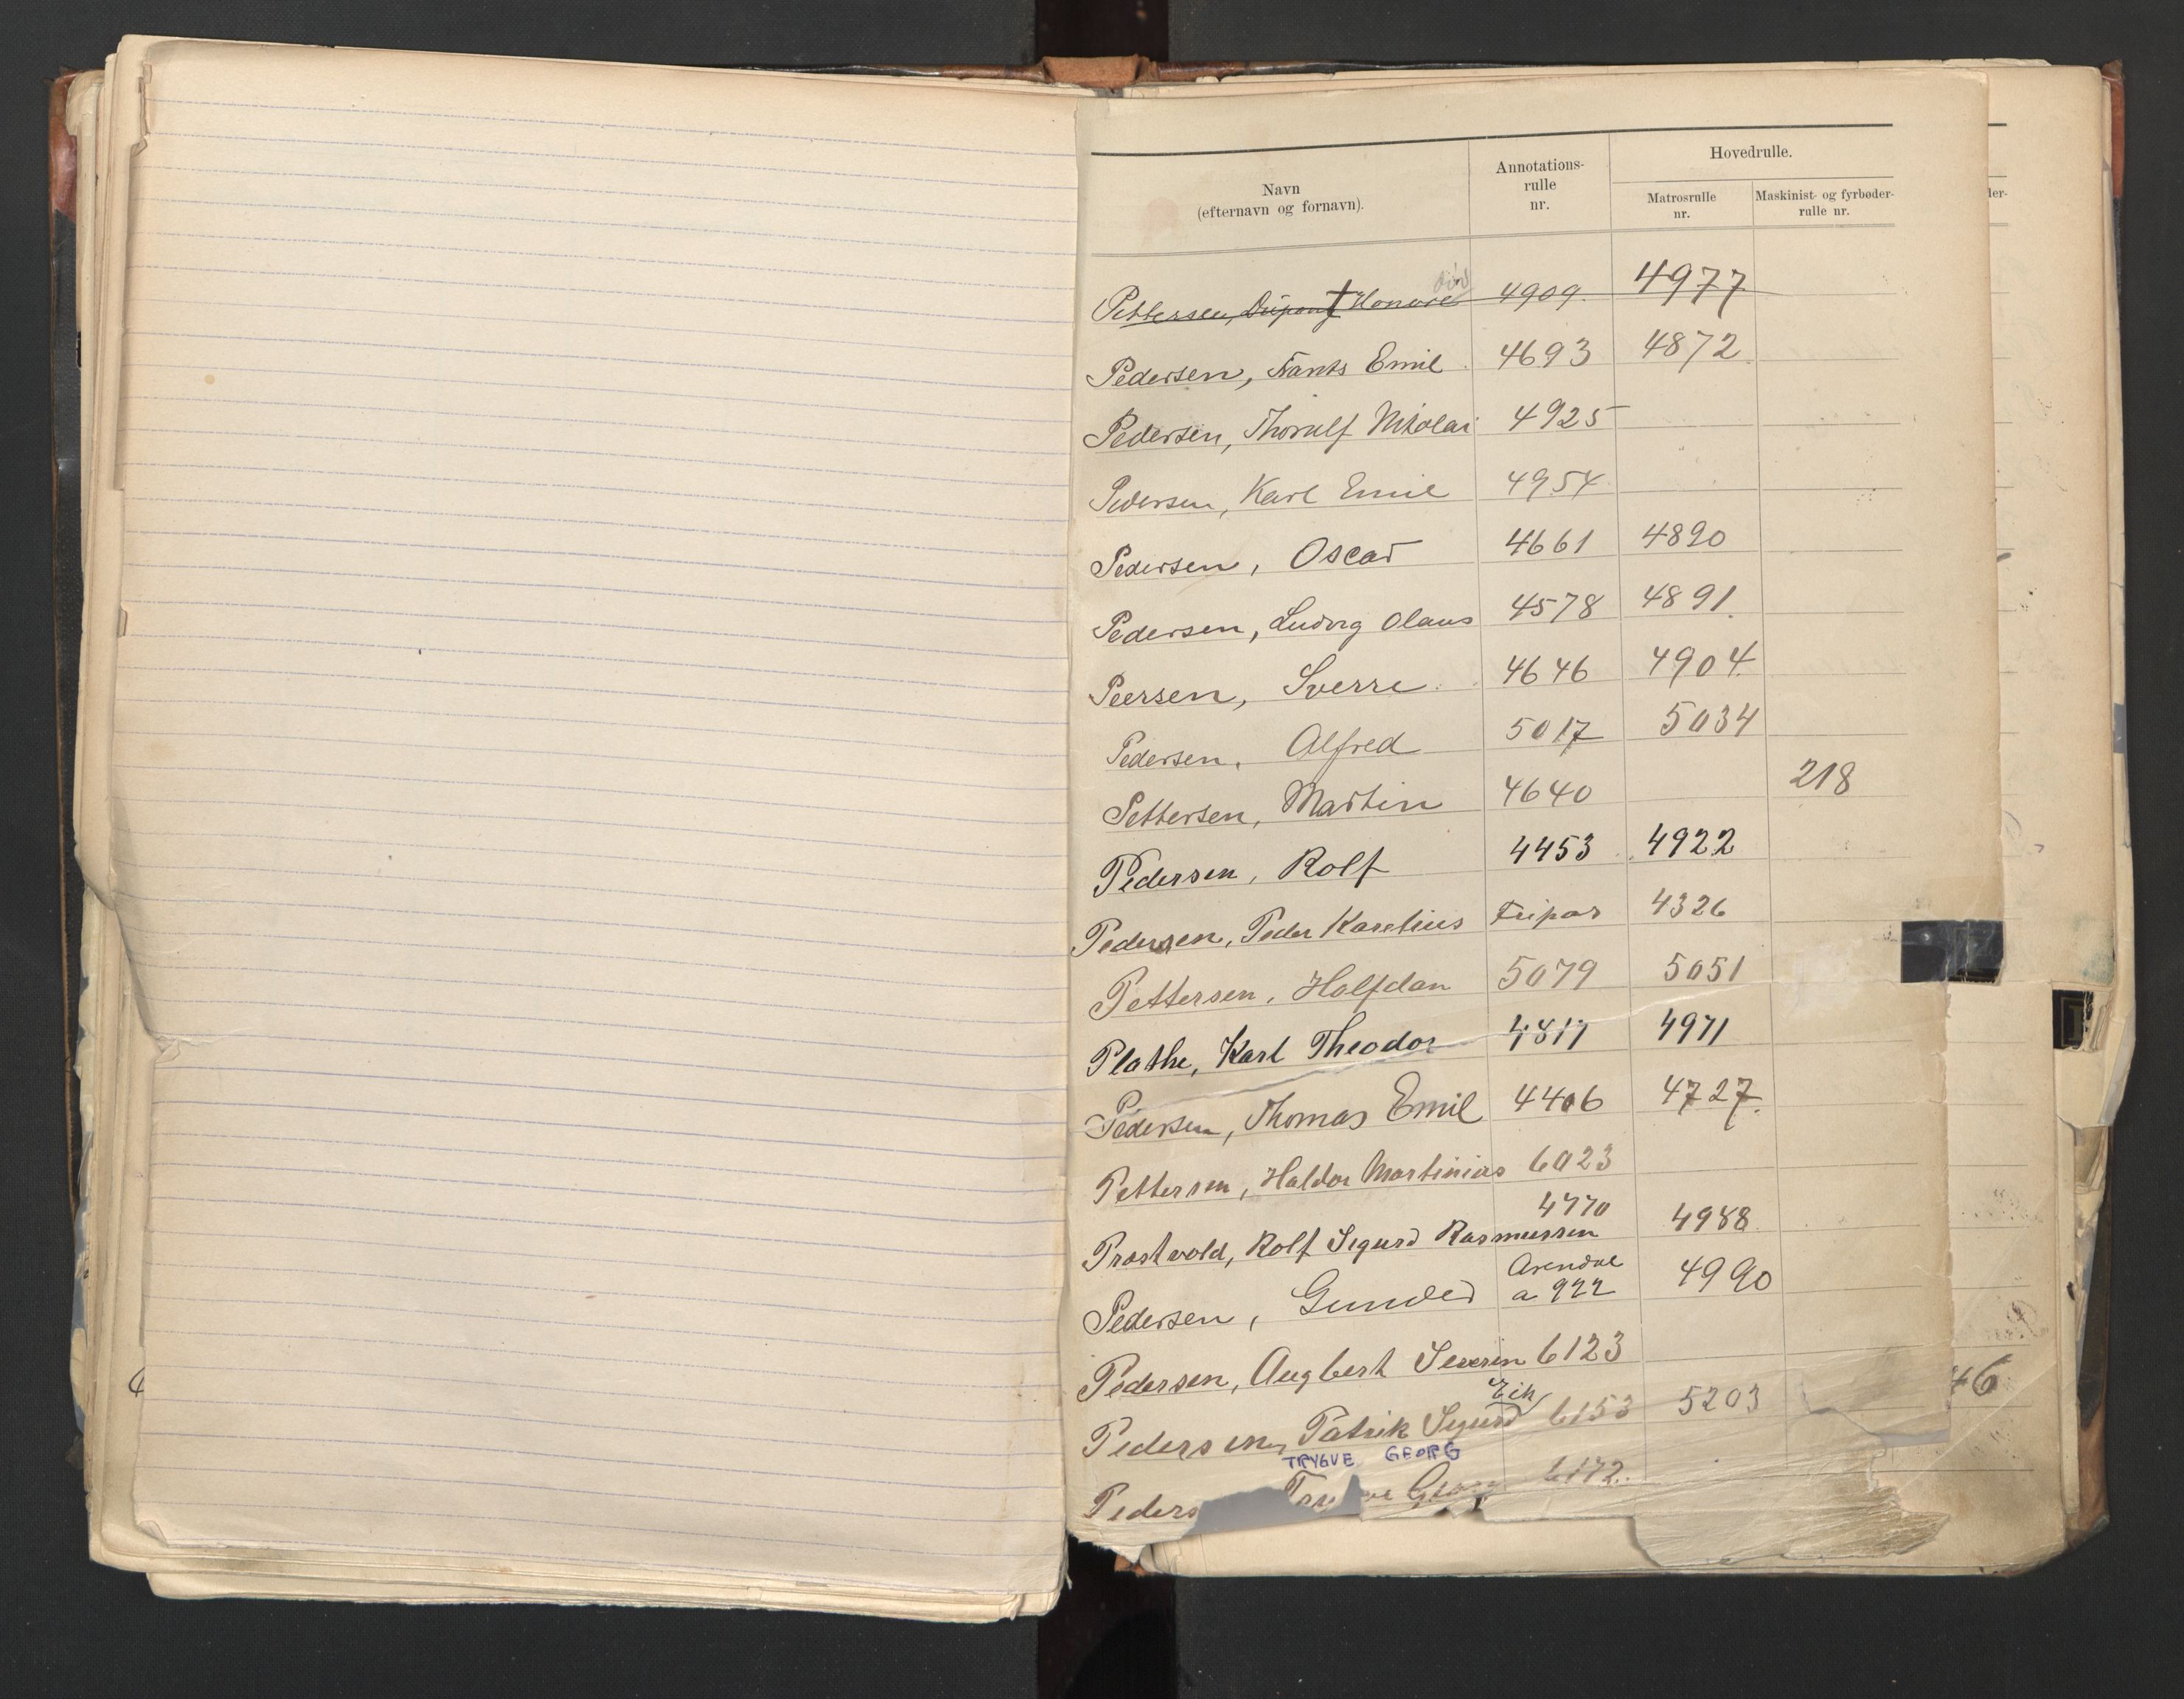 Navn
(efternavn og fornavn).
Annotations-
rulle
nr.
Hovedrulle.
Matrosrulle
nr.
Maskinist- og fyrbøder-
rulle nr.
død
Pettersen, Dupont † Honoré 4909 4977
Pedersen, Frants Emil 4693 4872
Pedersen, Thorulf Nikolai 4925
Pedersen, Karl Emil 4954
Pedersen, Oscar 4661 4890
Pedersen, Ludvig Olaus 4578 4891
Peersen, Sverre 4646 4904
Pedersen, Alfred 5017 5034
Pettersen, Martin 4640 218
Pedersen, Rolf 4453 4922
Pedersen, Peder Karelius Fripas 4326
Pettersen, Halfdan 5079 5051
Plathe, Karl Theodor 4817 4971
Pedersen, Thomas Emil 4406 4727
Pettersen, Haldor Martinius 6023
Prostvold, Rolf Sigurd Rasmussen 4770 4988
Pedersen, Gunder Arendal a 922 4990
Pedersen, Augbert Severin 6123
Pedersen, Patrik Sigurd Eik 6153 5203
TRYGVE GEORG
Peders Trygve Georg 6172
46